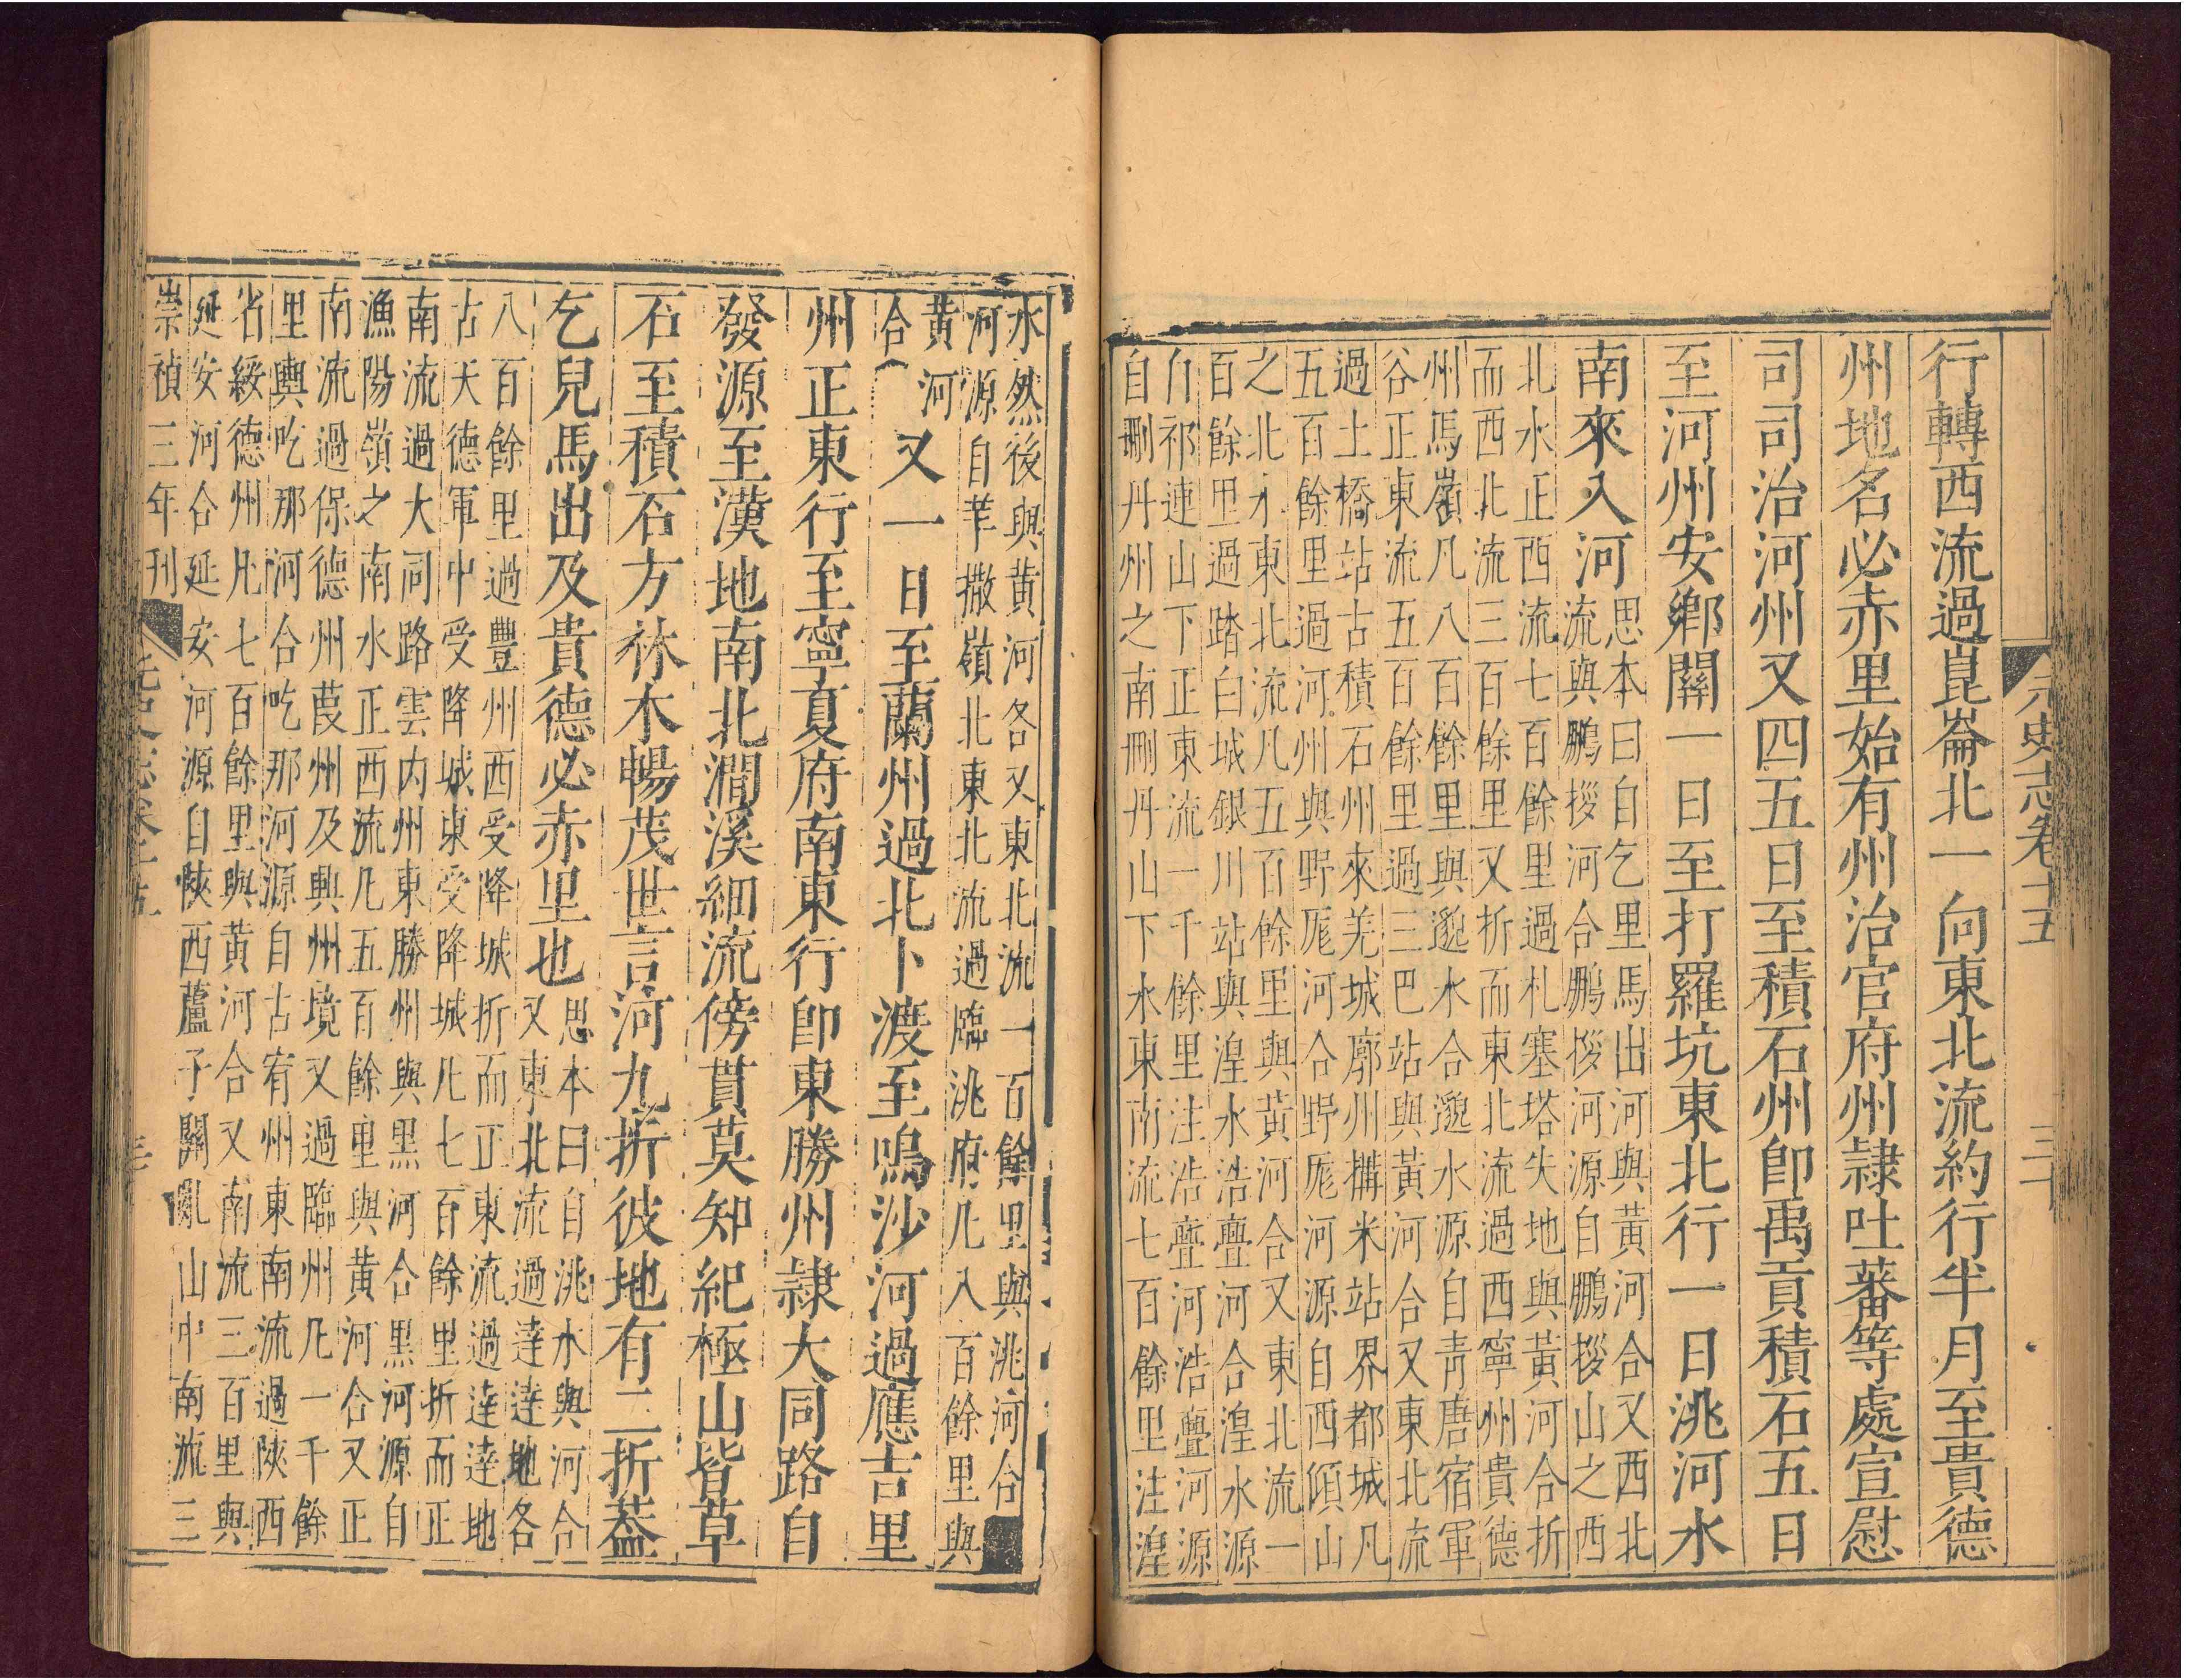 元史志卷十五
行轉西流過崑崙北一向東北流約行半月至貴德
州地名必赤里始有州治官府州隸吐蕃等處宣慰
司司治河州又四五日至積石州卽禹貢積石五日
至河州安鄉關一日至打羅坑東北行一日洮河水
南來入河思本曰自乞里馬出河與黃河合又西北
流與鵬拶河合鵬拶河源自鵬拶山之西
北水正西流七百餘里過札塞塔失地與黃河合折
而西北流三百餘里又折而東北流過西寧州貴德
州馬嶺凡八百餘里與邈水合邈水源自青唐宿軍
谷正東流五百餘里過三巴站與黃河合又東北流
過土橋站古積石州來羌城廓州搆米站界都城凡
五百餘里過河州與野厖河合野厖河源自西傾山
之北水東北流凡五百餘里與黃河合又東北流一
百餘里過踏白城銀川站與湟水浩亹河合湟水源
自祁連山下正東流一千餘里注浩亹河浩亹河源
自刪丹州之南刪丹山下水東南流七百餘里注湟
水然後與黃河各又東北流一百餘里與洮河合
河源自羊撒嶺北東北流過臨洮府凡八百餘里與
黃河
合又一日至蘭州過北卜渡至鳴沙河過應吉里
州正東行至寧夏府南東行卽東勝州隸大同路自
發源至漢地南北澗溪細流傍貫莫知紀極山皆草
石至積石方林木暢茂世言河九折彼地有二折蓋
乞兒馬出及貴德必赤里也思本曰自洮水與河合
又東北流過達達地各
八百餘里過豐州西受降城折而正東流過達達地
古天德軍中受降城東受降城凡七百餘里折而正
南流過大同路雲内州東勝州與黑河合黑河源自
漁陽嶺之南水正西流凡五百餘里與黃河合又正
南流過保德州葭州及興州境又過臨州凡一千餘
里與吃那河合吃那河源自古宥州東南流過陝西
省綏德州凡七百餘里與黃河合又南流三百里與
延安河合延安河源自陝西蘆子關亂山中南流三
崇禎三年刊